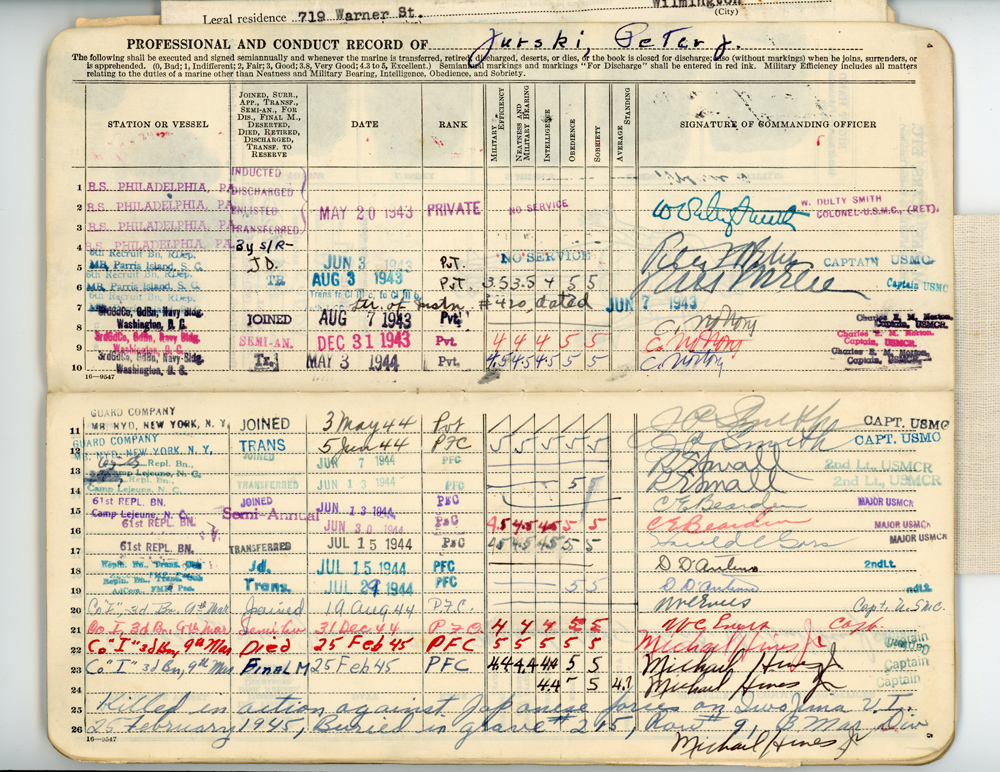 Wilmington
Legal residence 719 Warner St. (City)
PROFESSIONAL AND CONDUCT RECORD OF Jurski, Peter J. 4
The following shall be executed and signed semiannually and whenever the marine is transferred, retired, discharged, deserts, or dies, or the book is closed for discharge; also (without markings) when he joins, surrenders, or
is apprehended. (0, Bad; 1, Indifferent; 2, Fair; 3, Good; 3.8, Very Good; 4.3 to 5, Excellent.) Semiannual markings and markings "For Discharge" shall be entered in red ink. Military Efficiency includes all matters
relating to the duties of a marine other than Neatness and Military Bearing, Intelligence, Obedience, and Sobriety.
STATION OR VESSEL
JOINED, SURR.,
APP., TRANSF.,
SEMI-AN., FOR
DIS., FINAL M.,
DESERTED,
DIED, RETIRED,
DISCHARGED,
TRANSF. TO
RESERVE
DATE
RANK
MILITARY EFFICIENCY
NEATNESS AND MILITARY BEARING
INTELLIGENCE
OBEDIENCE
SOBRIETY
AVERAGE STANDING
SIGNATURE OF COMMANDING OFFICER
1 R.S. PHILADELPHIA, PA. INDUCTED
2 R.S. PHILADELPHIA, PA. DISCHARGED
ENLISTED MAY 20 1943 PRIVATE NO SERVICE W. Dulty Smith W. DULTY SMITH
COLONEL-U.S.M.C., (RET).
3 R.S. PHILADELPHIA, PA. TRANSFERRED
4 R.S. PHILADELPHIA, PA. By S/R-
6th Recruit Bn, RDep.
5 MB, Parris Island, S. C. JD. JUN 3 1943 PvT. NO SERVICE CAPTAIN USMC
6th Recruit Bn, RDep.
6 MB, Parris Island, S. C. TR AUG 3 1943 PvT. 3.5 3.5 4 5 5 Captain USMC
7 Trans fr Cl III c, to Cl III b, Ltr. of instn. #420, dated JUN 7 1943
3rdGdCo, GdBn, Navy Bldg.
8 Washington, D. C. JOINED AUG 7 1943 Pvt. Charles E. M. Norton.
Captain, USMCR.
3rdGdCo, GdBn, Navy Bldg.
9 Washington, D. C. SEMI-AN. DEC 31 1943 Pvt. 4 4 4 5 5 Charles E. M. Norton.
Captain, USMCR.
3rdGdCo, GdBn, Navy Bldg.
10 Washington, D. C. Tr. MAY 3 1944 Pvt. 4.5 4.5 4.5 5 5 Charles E. M. Norton.
Captain, USMCR.
16—9547
GUARD COMPANY
11 MB, NYD, NEW YORK, N. Y. JOINED 3 May 44 Pvt CAPT. USMC
GUARD COMPANY
12 MB, NYD, NEW YORK, N. Y. TRANS 5 Jun 44 PFC 5 5 5 5 5 CAPT. USMC
Repl. Bn.,
13 Camp Lejeune, N. C. JOINED JUN 7 1944 PFC R Small 2nd Lt., USMCR
Repl. Bn.,
14 Camp Lejeune, N. C. TRANSFERRED JUN 13 1944 PFC 5 5 R Small 2nd Lt., USMCR
61st REPL. BN.
15 Camp Lejeune, N. C. JOINED JUN 13 1944 PFC C E Bearden MAJOR USMCR
16 61st REPL. BN. Semi-Annual JUN 30 1944 PFC 4.5 4.5 4.5 5 5 C E Bearden MAJOR USMCR
17 61st REPL. BN. TRANSFERRED JUL 15 1944 PFC 4.5 4.5 4.5 5 5 MAJOR USMCR
18 Jd. JUL 15 1944 PFC 2ndLt.
19 Trans. JUL 29 1944 PFC 5 5 2ndLt.
20 Co "I", 3d Bn, 9th Mar Joined 19 Aug 44 PFC. Capt. USMC.
21 Co I, 3d Bn, 9th Mar Semi ann 31 Dec 44 PFC 4 4 4 5 5 Capt.
22 Co "I" 3d Bn, 9th Mar Died 25 Feb 45 PFC 5 5 5 5 5 Michael Hines Jr Captain
23 Co "I" 3d Bn, 9th Mar Final M 25 Feb 45 PFC 4.4 4.4 4.4 5 5 Michael Hines Jr Captain
24 4.4 5 4.7 Michael Hines Jr Captain
25 Killed in action against Japanese forces on Iwo Jima V.I.
26 25 February 1945, Buried in grave # 215, Row # 9, 3 Mar Div
Michael Hines Jr 5
16—9547